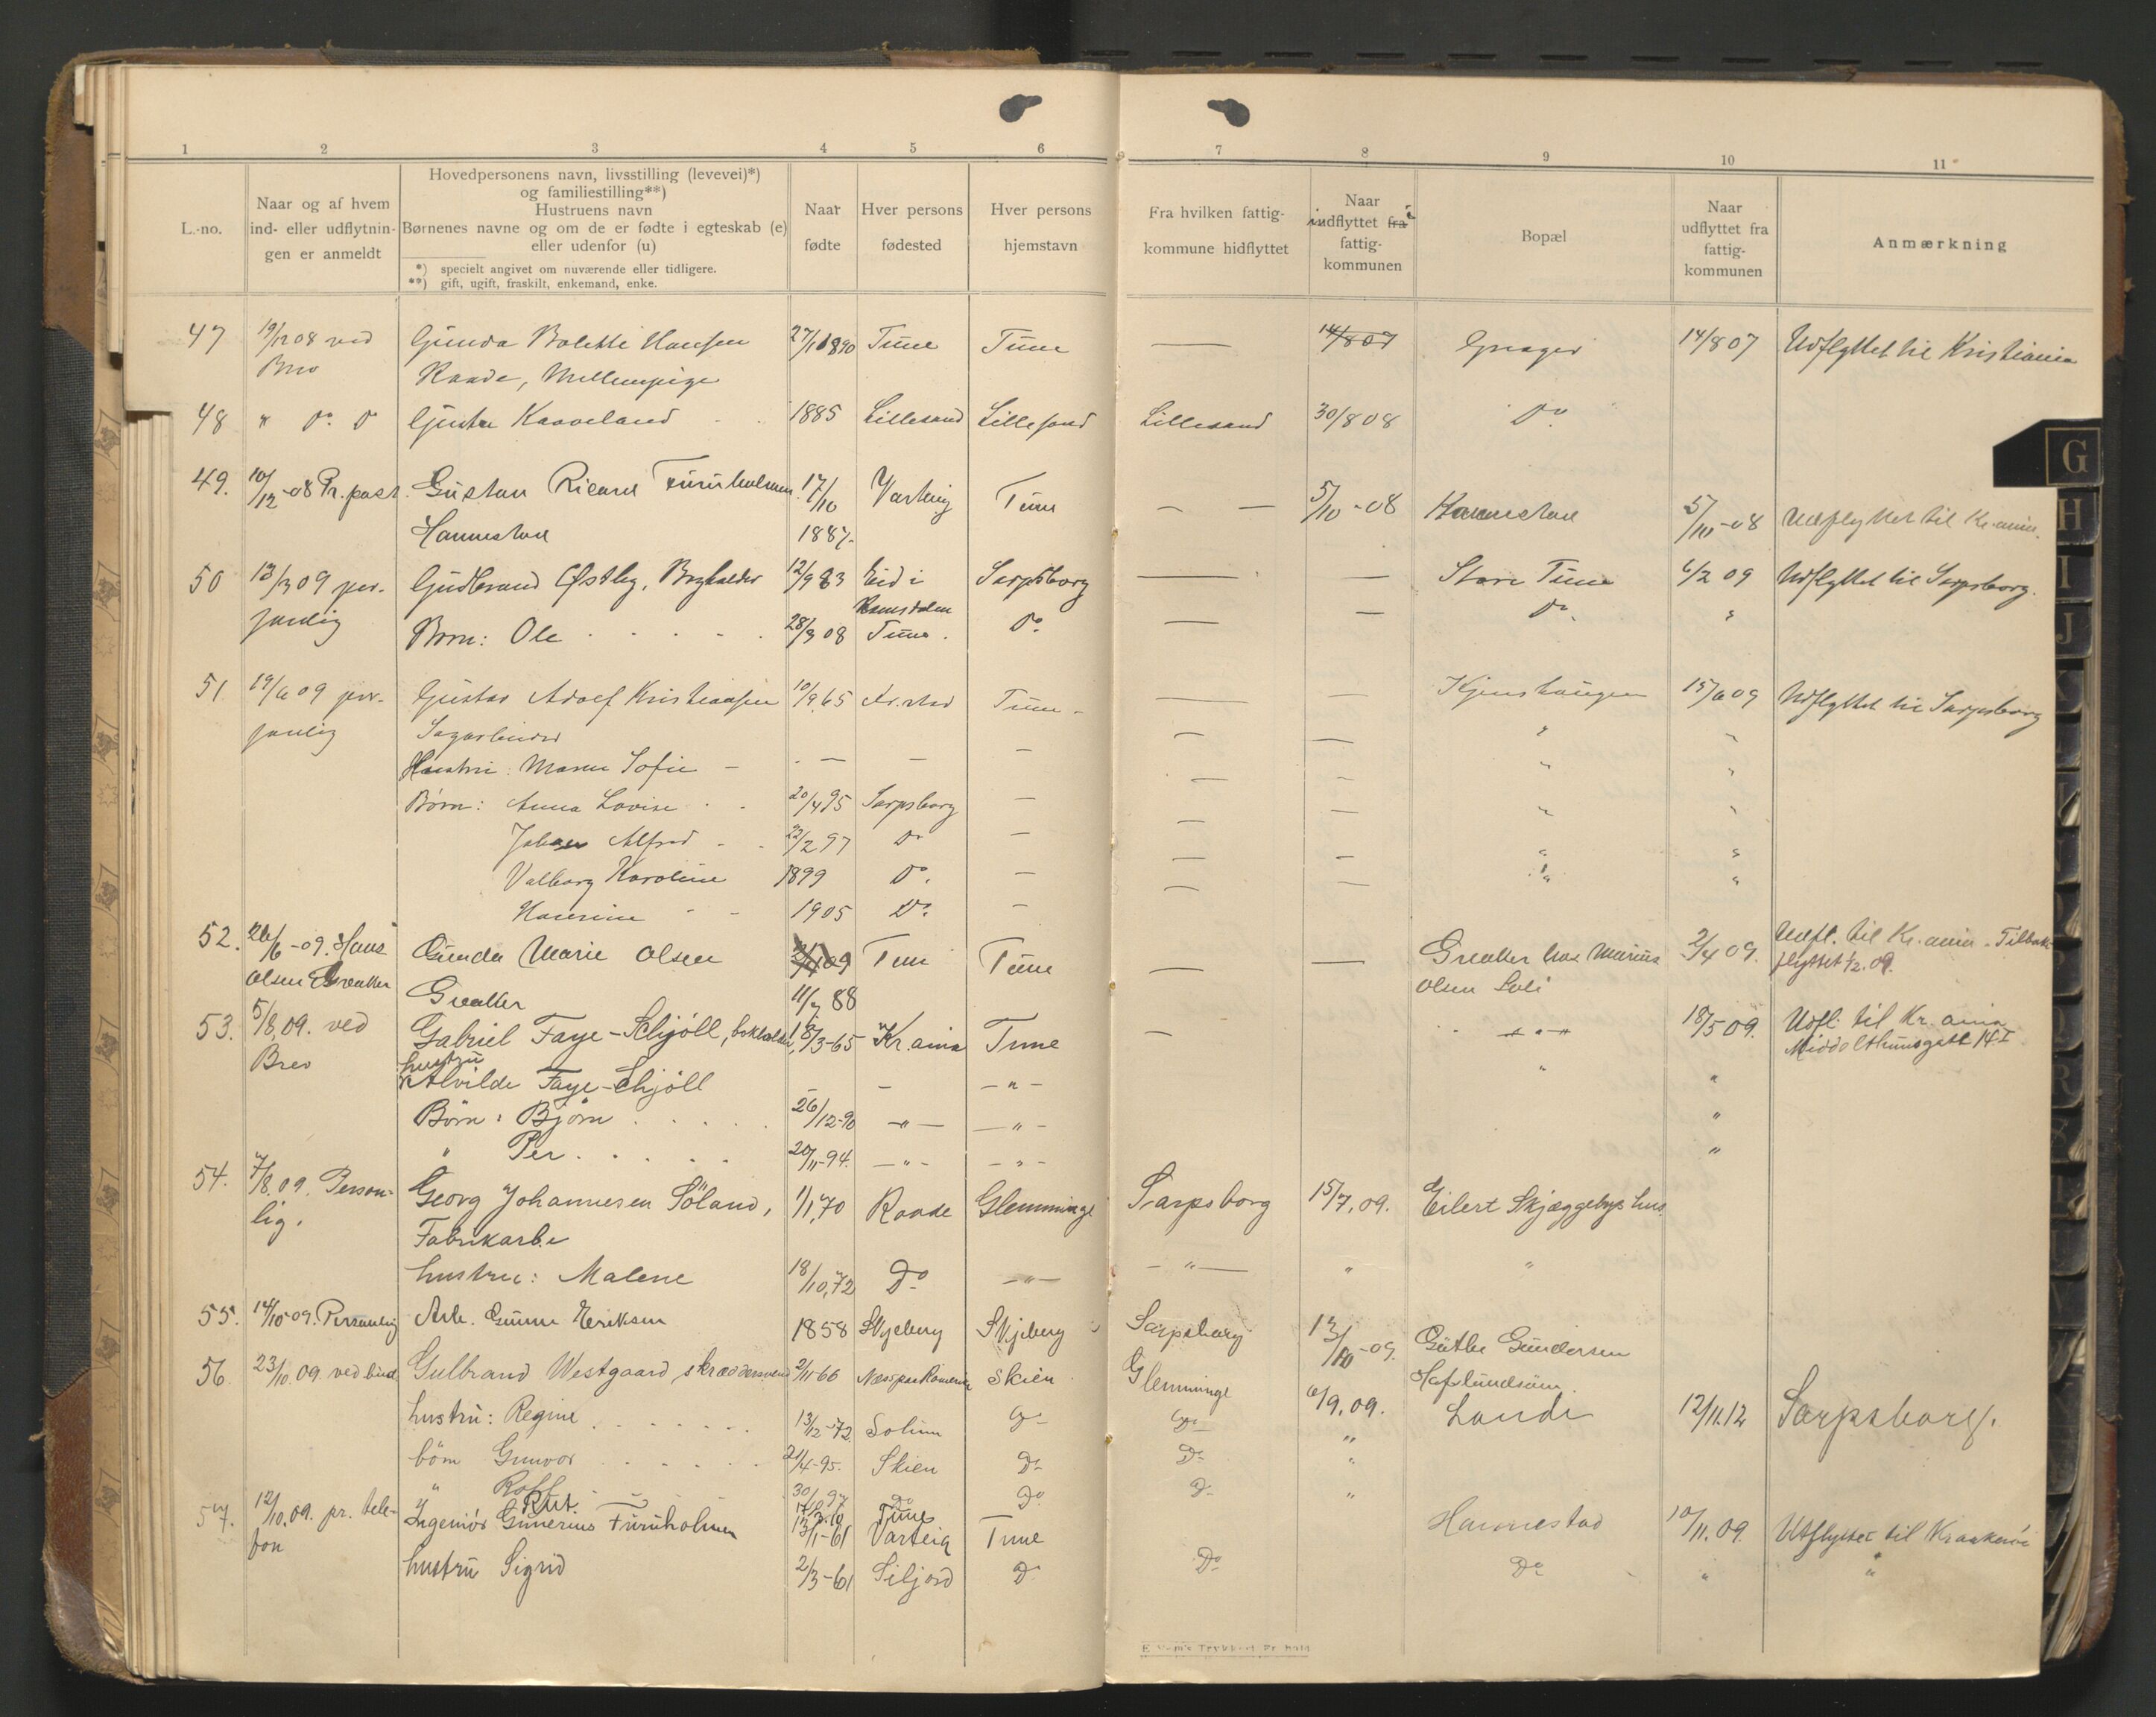 1 2 3 4 5 6 7 8 9 10 11
L.-no.
Naar og af hvem
ind- eller udflytnin-
gen er anmeldt
Hovedpersonens navn, livsstilling (levevei)*)
og familiestilling**)
Hustruens navn
Børnenes navne og om de er fødte i egteskab (e)
eller udenfor (u)
*) specielt angivet om nuværende eller tidligere.
**) gift, ugift, fraskilt, enkemand, enke.
Naar
fødte
Hver persons
fødested
Hver persons
hjemstavn
Fra hvilken fattig-
kommune hidflyttet
Naar
indflyttet fra i
fattig-
kommunen
Bopæl
Naar
udflyttet fra
fattig-
kommunen
Anmærkning
47 19/12 08 ved Gunda Bolette Hansen 27/11890 Tune Tune — 14/8 07 Greager 14/8 07 Udflyttet til Kristiania
Brev Raade, Mellempige
48 " Do Do Gusta Kaaveland 1885 Lillesand Lillesand Lillesand 30/8 08 Do
49. 10/12-08 Pr. post. Gustav Ricard Furuholmen 17/10 Varteig Tune — — 5/10-08 Hannestad 5/10-08 Udflyttet til Kr.ania.
Hannestad 1887.
50 13/3 09 per- Gudbrand Østby, Bogholder 12/9 83 Eid i Sarpsborg — — Store Tune 6/2 09 Udflyttet til Sarpsborg.
sonlig Romsdalen
Børn: Ole 28/3 08 Tune. Do — — Do. "
51 19/6 09 per- Gustav Adolf Kristiansen 10/9 65 Fr.stad Tune — — Kjenshaugen 15/6 09 Udflyttet til Sarpsborg
sonlig Sagarbeider — — " "
Hustru: Maren Sofie — — — — — — " "
Børn: Anna Lovise 20/4 95 Sarpsborg — — — " "
Johan Alfred 22/2 97 Do — — — " "
Valborg Karoline 1899 Do. — — — " "
Hansine 1905 Do. —
52. 26/6-09. Hans Gunda Marie Olsen Tune Tune — — Greaker hos Marius 2/4 09. Udfl. til Kr.ania. Tilbak-
Olsen Greaker Greaker 11/7 88 Olsen Soli flyttet 1/2.09.
53. 5/8.09. ved Gabriel Faye-Schjöll, bokholder, 18/3-65 Kr.ania Tune — — " — 18/5 09. Udfl. til Kr.ania
Brev Middelthunsgate 14 I
hustru
Alvilde Faye-Schjöll — — — " — " "
Börn: Björn 26/12-90 — " — — " — "
" Per 20/11-94. — " — — " — "
54. 7/8.09. Person- Georg Johannesen Söland, 1/1,70 Raade Glemminge Sarpsborg 15/7,09. Eilert Skjæggebys hus.
lig. Fabrikarb.
hustru: Malene 18/10,72 Do — " — — " — " "
55. 14/10-09. Personlig Arb. Gunne Eriksen 1858 Skjeberg Skjeberg Sarpsborg 13/10-09. Güthe Gundersen
Hafslundsöen.
56. 23/10.09. ved bud Gulbrand Westgaard, skræddersvend 2/11-66 Næs paa Romerike Skien Glemminge 6/9.09. Lande 12/11.12 Sarpsborg.
hustru: Regine 13/12-72. Solum Do Do "
börn Gunvor 21/4-95. Skien Do Do "
" Rolf 30/10 97 Do Do Do "
Rut Tune
57. 12/10.09. pr. tele- Ingeniör Gunerius Furuholmen 13/1-61 Varteig Tune Hannestad 10/11.09. Utflyttet til Kraakerøi
fon
hustru Sigrid 2/3-61 Siljord Do Do Do " "
G H I J K L M N O P Q R S